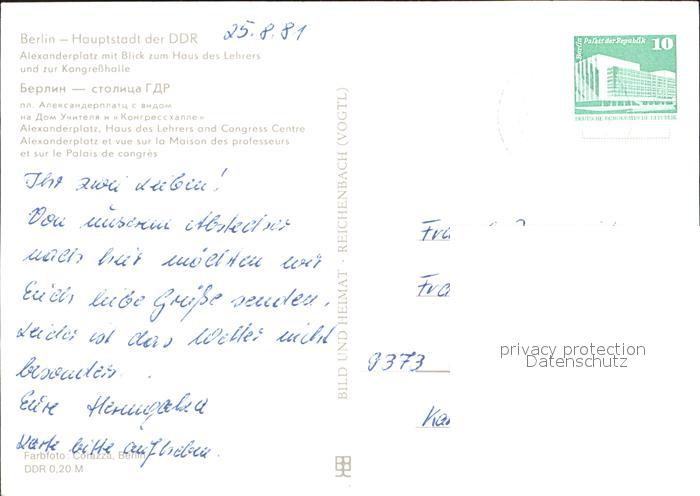 Berlin — Hauptstadt der DDR
25.8.81
Alexanderplatz mit Blick zum Haus des Lehrers
und zur Kongreßhalle
Берлин — столица ГДР
пл. Александерплатц с видом
на Дом Учителя и «Конгрессхалле»
Alexanderplatz, Haus des Lehrers and Congress Centre
Alexanderplatz et vue sur la Maison des professeurs
et sur le Palais de congrès
Ihr zwei Lieben!
Von unserem Abstecher
nach hier möchten wir
Euch liebe Grüße senden.
Leider ist das Wetter nicht
besonders.
Eure
Karte bitte aufheben.
Farbfoto: Corazza, Berlin
DDR 0,20 M
BILD UND HEIMAT · REICHENBACH (VOGTL)
Berlin Palast der Republik 10
DEUTSCHE DEMOKRATISCHE REPUBLIK
Fra
Fra
9373
Ka
privacy protection
Datenschutz